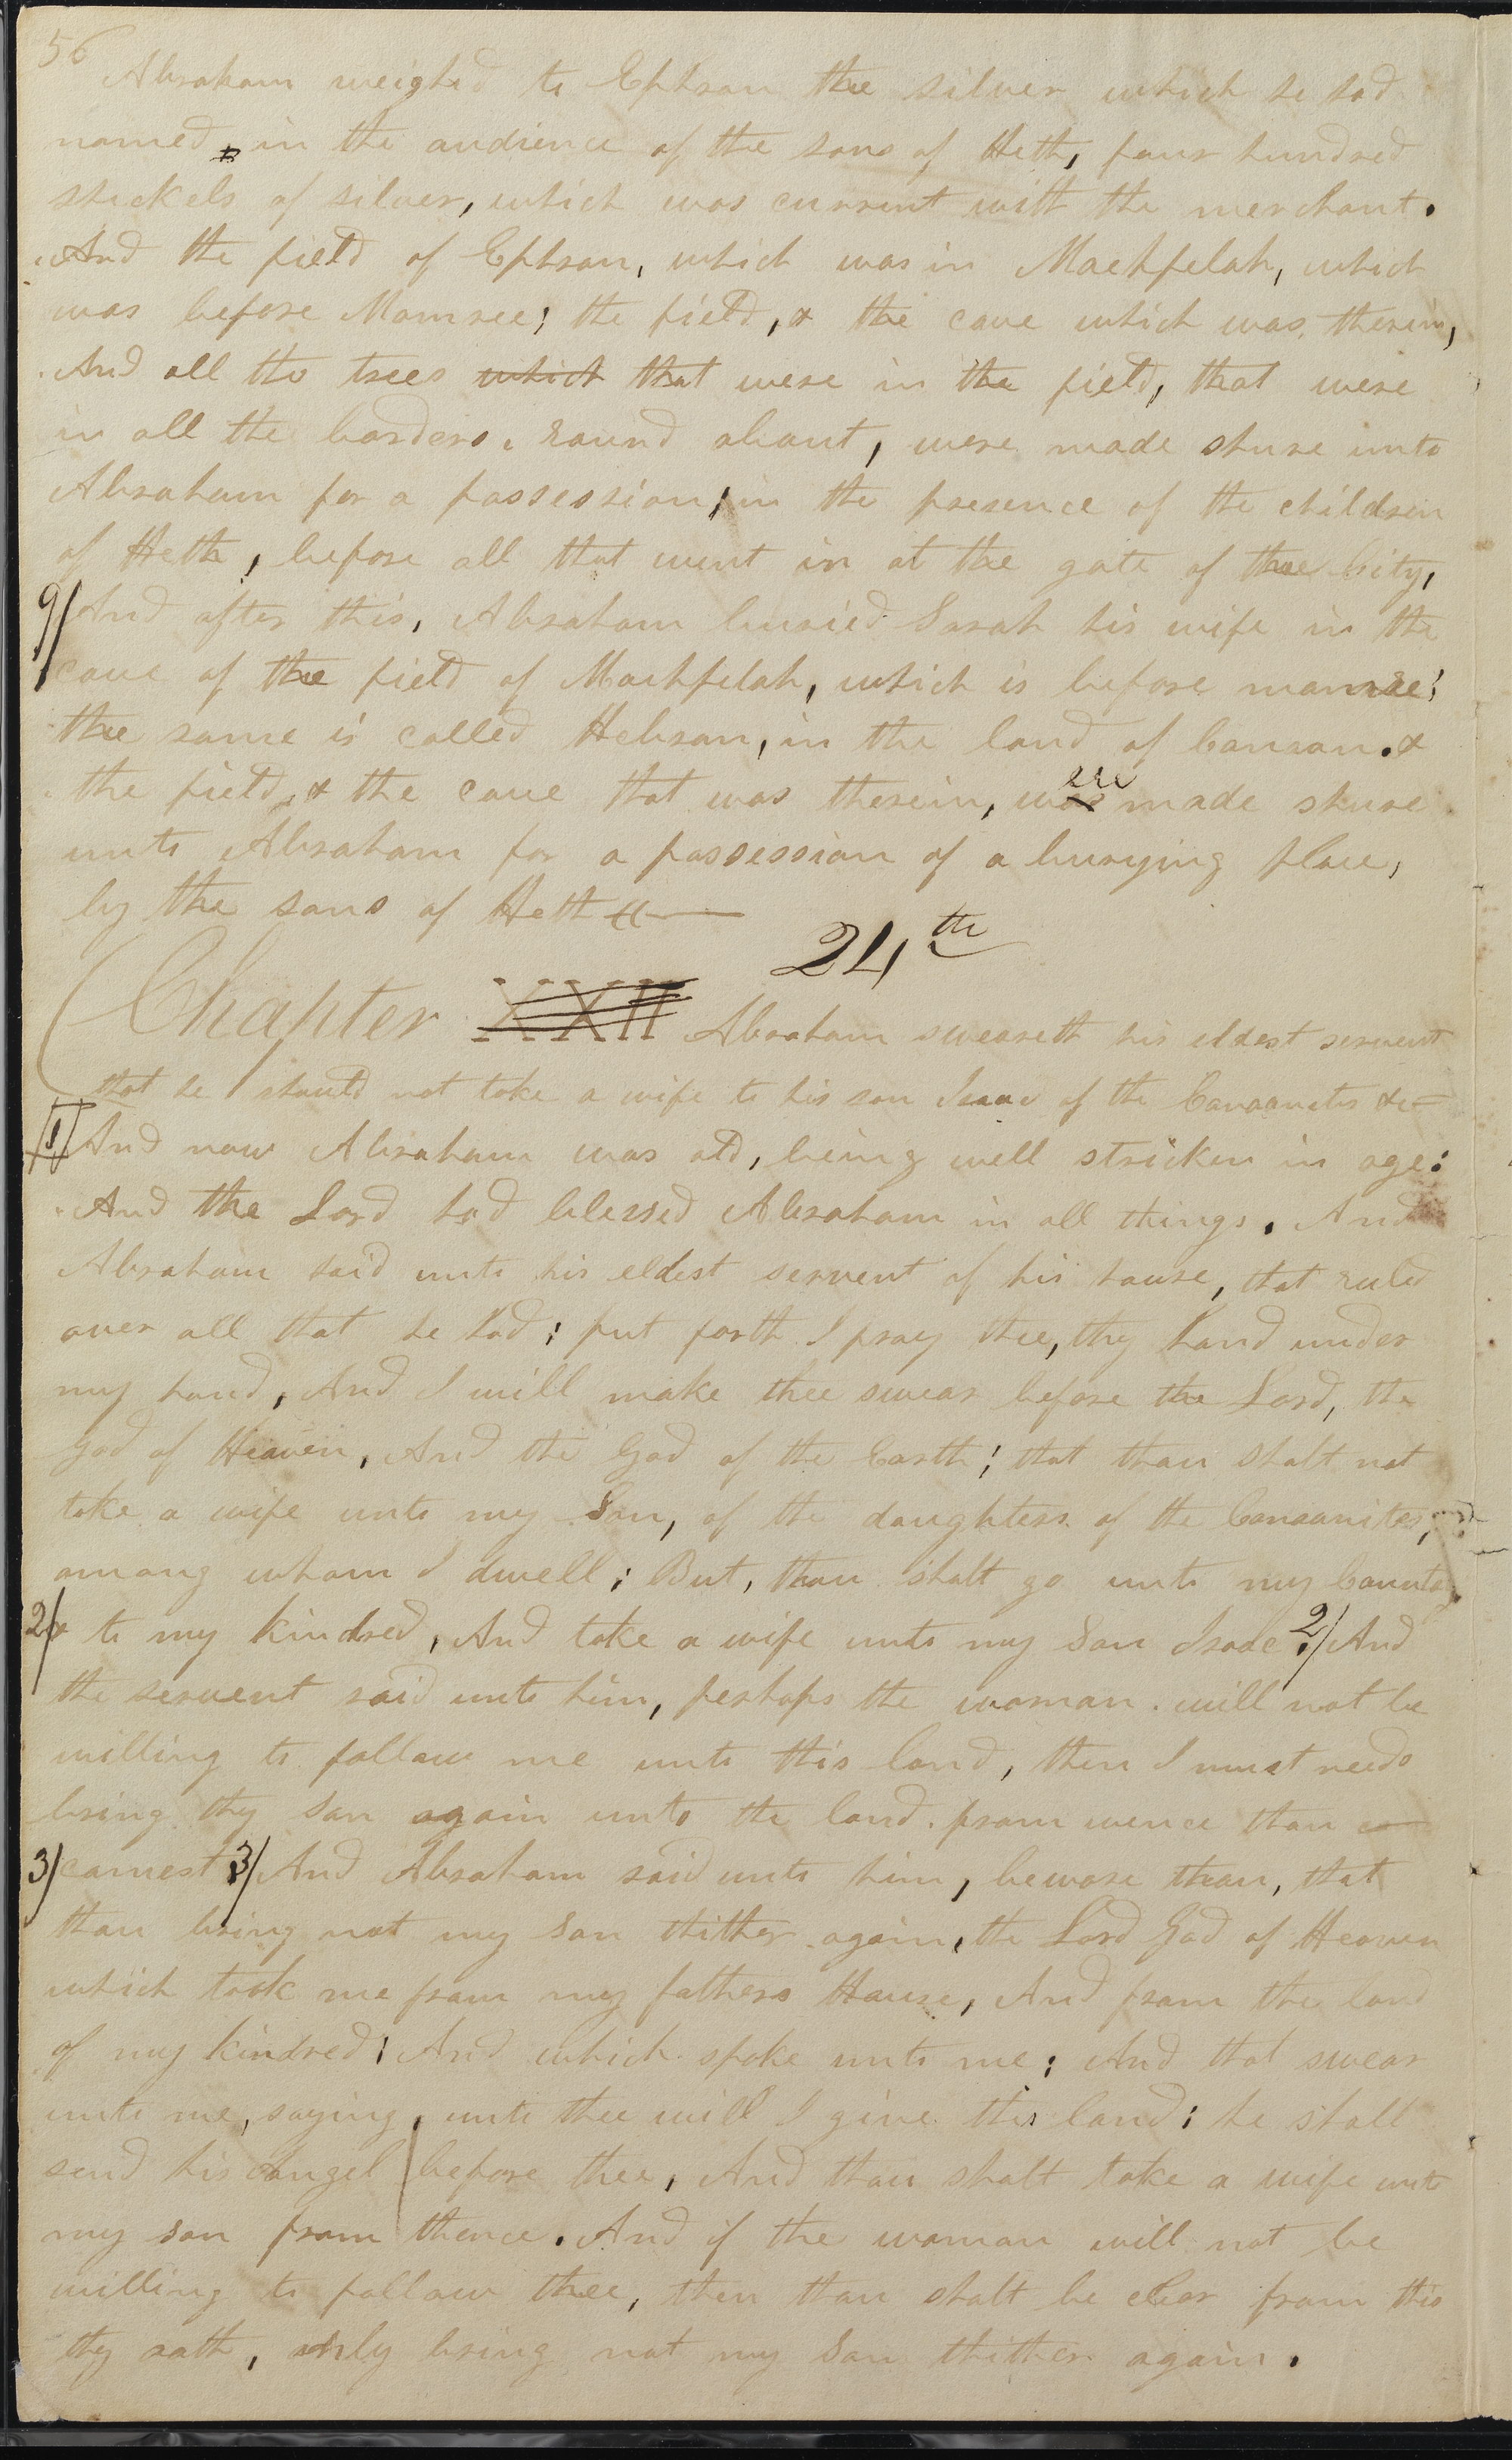 56
Abraham weighed to Ephron the silver which he had
named, in the audience of the sons of Heth, four hundred
shekels of silver, which was current with the merchant.
And the field of Ephron, which was in Machpelah, which
was before Mamree; the field, & the cave which was therein,
And all the trees which that were in the field, that were
in all the borders, round about, were made shure unto
Abraham for a possession, in the presence of the children
of Heth, before all that went in at the gate of thee City,
9/ And after this, Abraham buried Sarah his wife in the
cave of the field of Machpelah, which is before mamre;
the same is called Hebron, in the land of Canaan. &
the field, & the cave that was therein, was ere made shure
unto Abraham for a possession of a burying place,
by the sons of Heth
24th
Chapter XXII Abraham sweareth his eldest servent
that he should not take a wife to his son Isaac of the Canaanites &c
1/ And now Abraham was old, being well stricken in age:
And the Lord had blessed Abraham in all things. And
Abraham said unto his eldest servent of his house, that ruled
over all that he had; put forth I pray thee, thy hand under
my hand, And I will make thee swear before the Lord, the
God of Heaven, And the God of the Earth; that thou shalt not
take a wife unto my Son, of the daughters of the Canaanites,
among whom I dwell; But, thou shalt go unto my Country
2/ & to my kindred, And take a wife unto my Son Isaac. 2/ And
the servent said unto him, perhaps the woman will not be
willing to follow me unto this land, then I must needs
bring thy son again unto the land from wence thou ca
3/ camest 3/ And Abraham said unto him, beware thou, that
thou bring not my son thither again, the Lord God of Heaven
which took me from my fathers House, And from the land
of my kindred; And which spoke unto me; And that swear
unto me, saying, unto thee will I give this land; he shall
send his Angel before thee, And thou shalt take a wife unto
my son from thence. And if the woman will not be
willing to follow thee, then thou shalt be clear from this
thy oath, only bring not my son thither again.